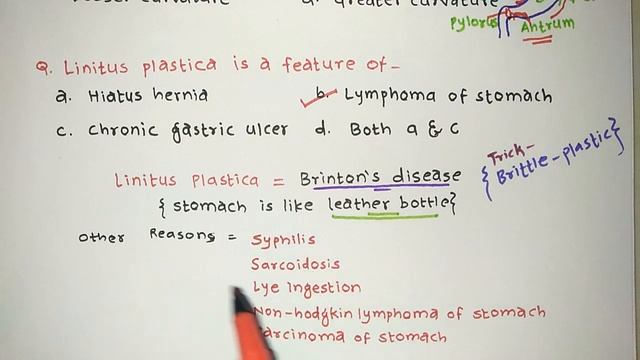 Greater curvature
Pylorus
Antrum
Q. Linitus plastica is a feature of-
a. Hiatus hernia
b. Lymphoma of stomach
c. Chronic gastric ulcer d. Both a & c
Linitus Plastica = Brinton's disease
{ stomach is like leather bottle}
Trick-
{ Brittle-plastic}
Other Reasons = Syphilis
Sarcoidosis
Lye Ingestion
Non-hodgkin lymphoma of stomach
Carcinoma of stomach